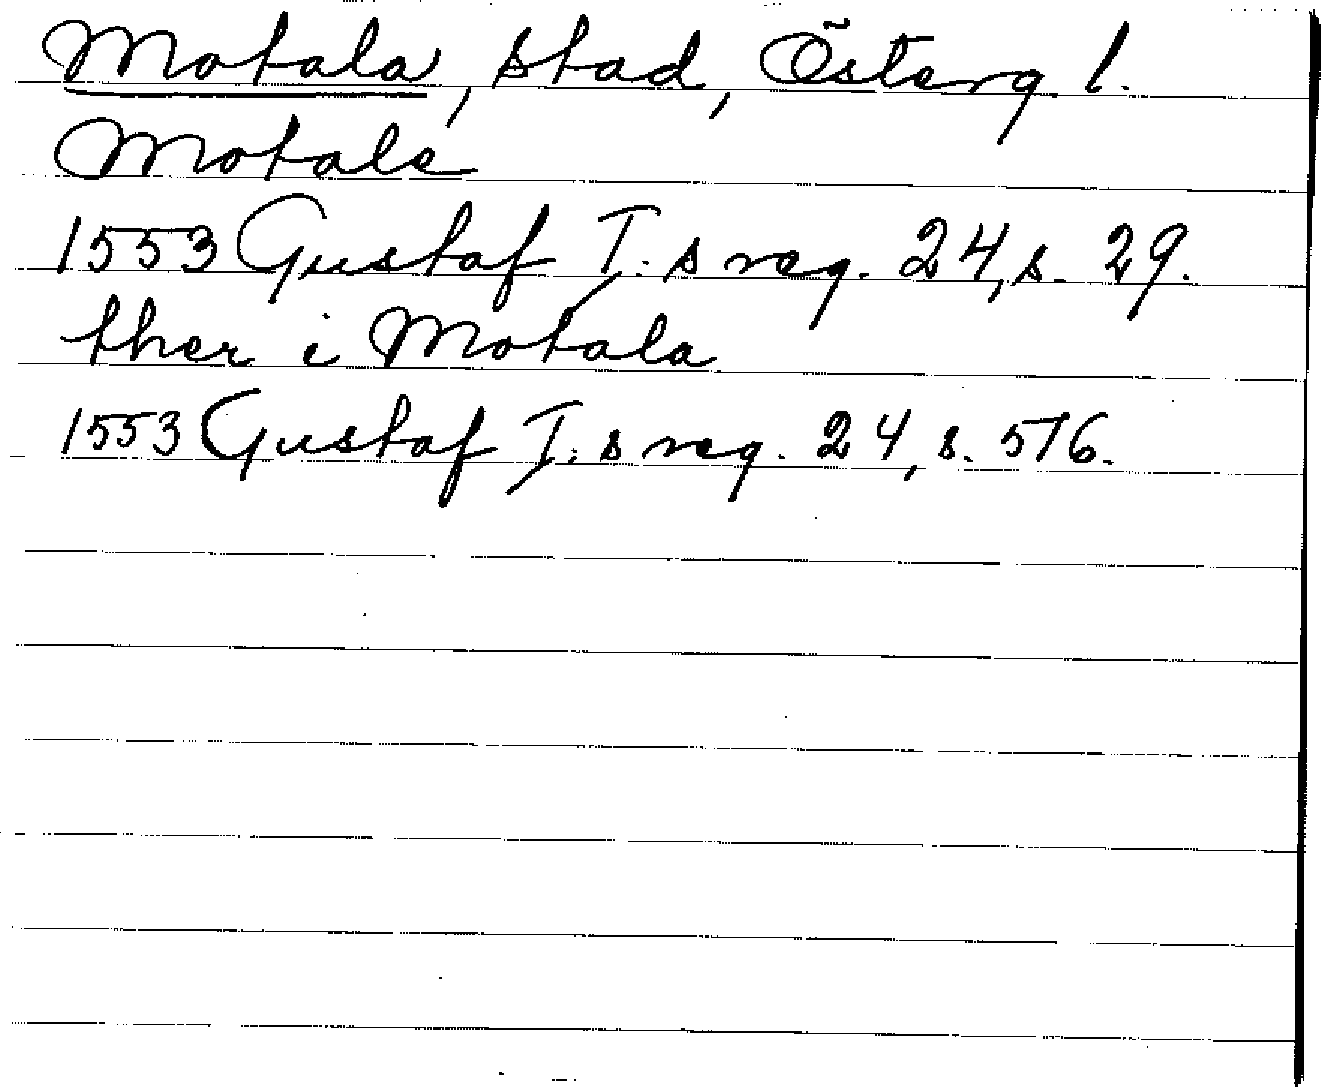 Motala, stad, Österg l.
Motale
1553 Gustaf I:s reg. 24, s. 29.
ther i Motala
1553 Gustaf I:s reg. 24, s. 576.